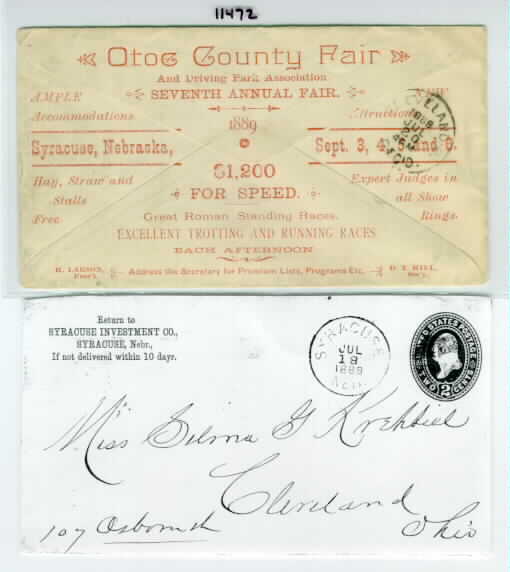 11472
Otoe County Fair
And Driving Park Association
SEVENTH ANNUAL FAIR.
AMPLE
Accommodations
1889
Attractions
CLEVELAND
1889
JUL
20
Syracuse, Nebraska,
Sept. 3, 4, 5 and 6.
$1,200
FOR SPEED.
Hay, Straw and
Stalls
Free
Expert Judges in
all Show
Rings.
Great Roman Standing Races.
EXCELLENT TROTTING AND RUNNING RACES
EACH AFTERNOON
H. LARSON,
Pres't.
Address the Secretary for Premium Lists, Programs Etc.
D. T. HILL,
Sec'y.
Return to
SYRACUSE INVESTMENT CO.,
SYRACUSE, Nebr.,
If not delivered within 10 days.
SYRACUSE
JUL
18
1889
NEB.
UNITED STATES POSTAGE
TWO 2 CENTS
Miss Selma G Krehbiel
Cleveland
107 Osborn st
Ohio